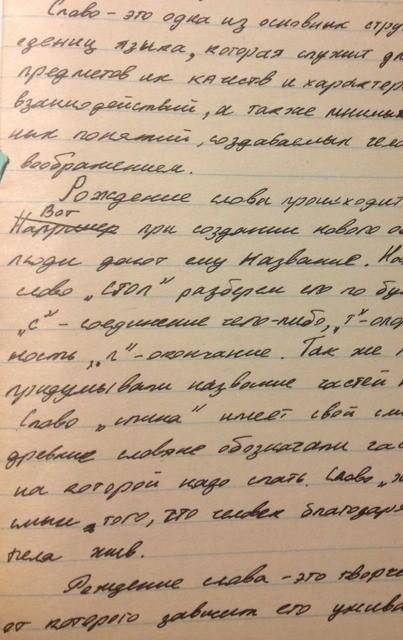 Слово - это одна из основных стру
единиц языка, которая служит дл
предметов их качеств и характери
взаимодействий, а также мнимых
ных понятий, создаваемых чело
воображением.
Рождение слова происходит
Вот
Например при создании нового об
люди дают ему название. На
слово „стол" разберем его по бук
„с" - соединение чего-либо, „т" - опор
ность, „л" - окончание. Так же
придумывали название частей
Слово „спина" имеет свой смы
древние славяне обозначали час
на которой надо спать. Слово „ж
смысл того, что человек благодаря
тела жив.
Рождение слова - это творче
от которого зависит его ужива